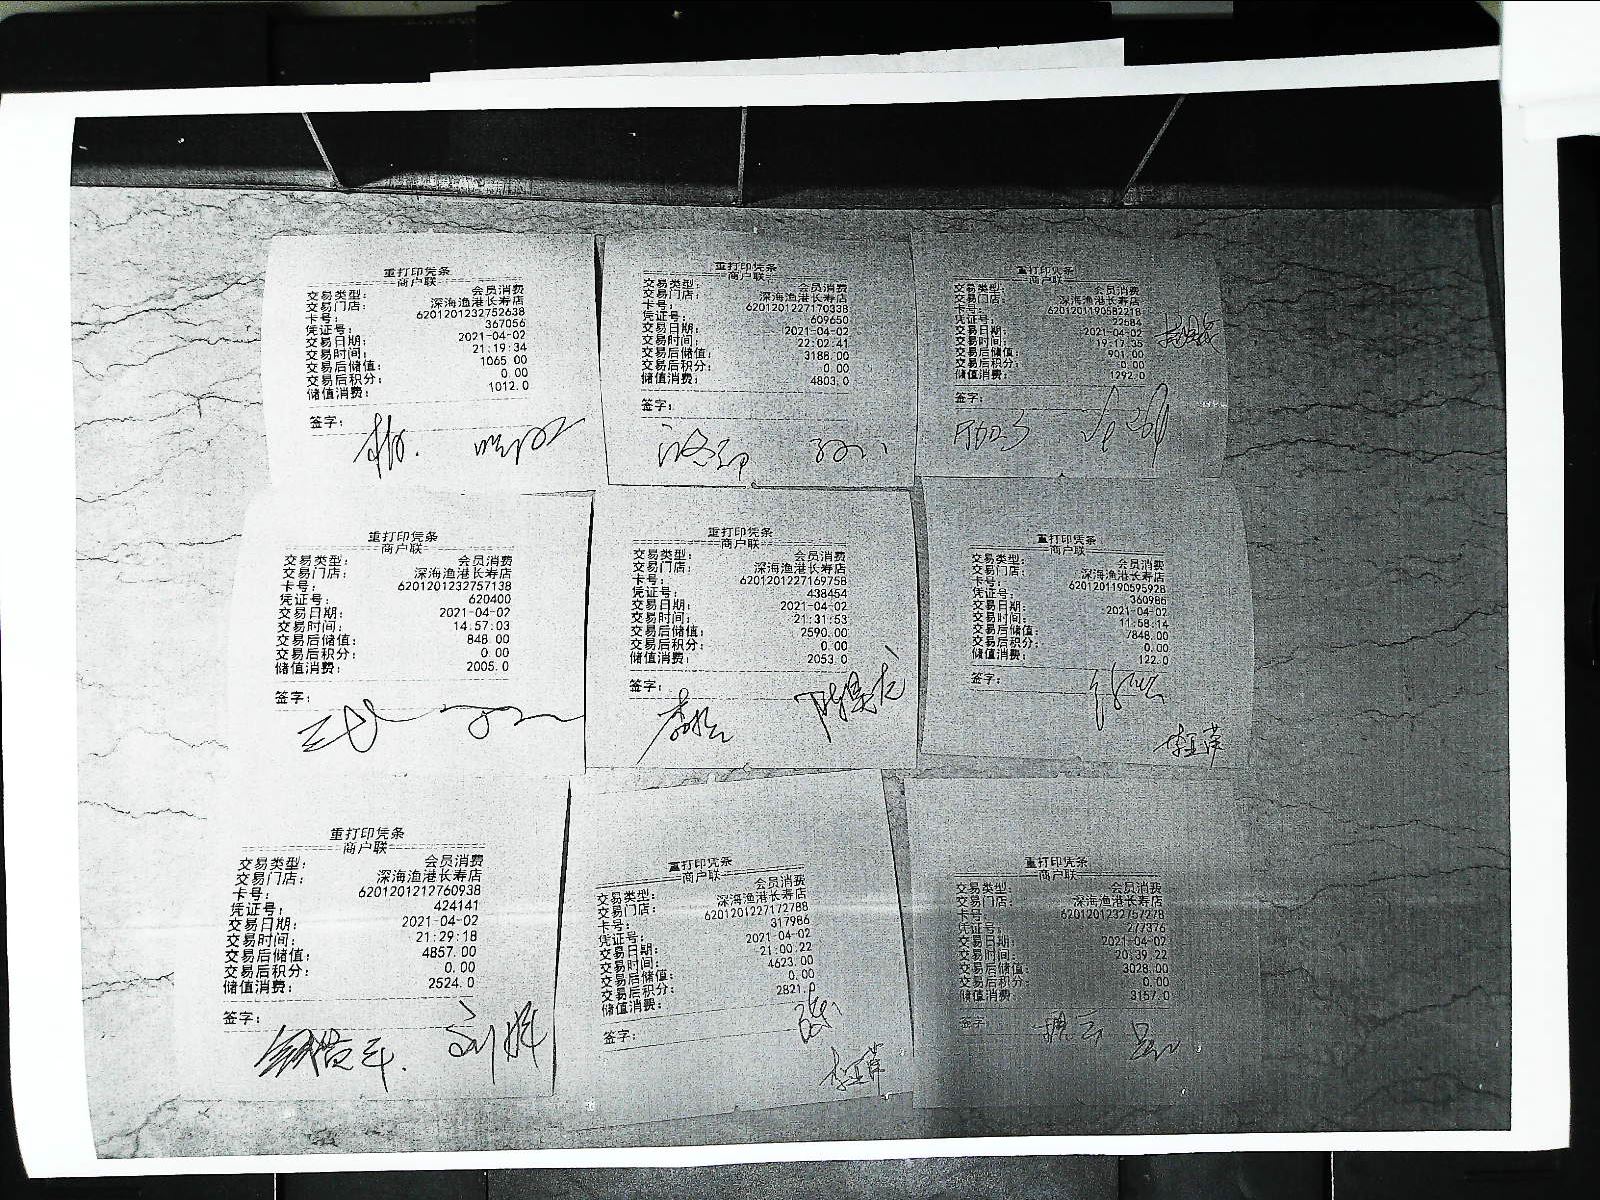 重打印凭条
商户联
交易类型： 会员消费
交易门店： 深海渔港长寿店
卡号： 6201201232752638
凭证号： 367056
交易日期： 2021-04-02
交易时间： 21:19:34
交易后储值： 1065.00
交易后积分： 0.00
储值消费： 1012.0
签字：
重打印凭条
商户联
交易类型： 会员消费
交易门店： 深海渔港长寿店
卡号： 6201201227170338
凭证号： 609650
交易日期： 2021-04-02
交易时间： 22:02:41
交易后储值： 3188.00
交易后积分： 0.00
储值消费： 4803.0
签字：
重打印凭条
商户联
交易类型： 会员消费
交易门店： 深海渔港长寿店
卡号： 6201201190582218
凭证号： 22684
交易日期： 2021-04-02
交易时间： 19:17:35
交易后储值： 901.00
交易后积分： 0.00
储值消费： 1292.0
签字：
重打印凭条
商户联
交易类型： 会员消费
交易门店： 深海渔港长寿店
卡号： 6201201232757138
凭证号： 620400
交易日期： 2021-04-02
交易时间： 14:57:03
交易后储值： 848.00
交易后积分： 0.00
储值消费： 2005.0
签字：
重打印凭条
商户联
交易类型： 会员消费
交易门店： 深海渔港长寿店
卡号： 6201201227169758
凭证号： 438454
交易日期： 2021-04-02
交易时间： 21:31:53
交易后储值： 2590.00
交易后积分： 0.00
储值消费： 2053.0
签字：
重打印凭条
商户联
交易类型： 会员消费
交易门店： 深海渔港长寿店
卡号： 6201201190595928
凭证号： 360986
交易日期： 2021-04-02
交易时间： 11:58:14
交易后储值： 7848.00
交易后积分： 0.00
储值消费： 122.0
签字：
李亚萍
重打印凭条
商户联
交易类型： 会员消费
交易门店： 深海渔港长寿店
卡号： 6201201212760938
凭证号： 424141
交易日期： 2021-04-02
交易时间： 21:29:18
交易后储值： 4857.00
交易后积分： 0.00
储值消费： 2524.0
签字：
重打印凭条
商户联
交易类型： 会员消费
交易门店： 深海渔港长寿店
卡号： 6201201227172788
凭证号： 317986
交易日期： 2021-04-02
交易时间： 21:00:22
交易后储值： 4623.00
交易后积分： 0.00
储值消费： 2821.0
签字：
李亚萍
重打印凭条
商户联
交易类型： 会员消费
交易门店： 深海渔港长寿店
卡号： 6201201232757278
凭证号： 277376
交易日期： 2021-04-02
交易时间： 20:39:22
交易后储值： 3028.00
交易后积分： 0.00
储值消费 3157.0
签字：